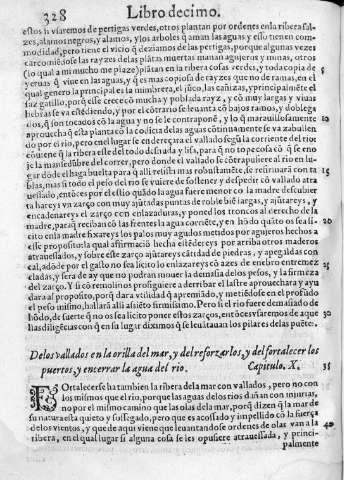 328 Libro decimo.
estos si vsaremos de pertigas verdes, otros plantan por ordenes en la ribera sal-
zes, alamos negros, y alamos, y los arboles que aman las aguas y esso tienen com-
modidad, pero tiene el vicio que deziamos de las pertigas, porque algunas vezes
carcomiendose las rayzes delas plãtas muertas manan agujeros y minas, otros
(lo qual a mi mucho me plaze) plãtan en la ribera cosas verdes, y toda copia de
yeruas q̃ viue en las aguas, y q̃ es mas copiosa de rayzes que no de ramas, en el 5
qual genero la principal es la mimbrera, el juco, las cañizas, y principalmẽte el
saz gatillo, porq̃ esse crece cõ mucha y poblada rayz, y cõ muy largas y viuas
hebras se va estẽdiendo, y por el cõtrario se leuanta cõ baxos ramos, y doblega
dos, q̃ son tocados cõ la agua y no se le contraponẽ, y lo q̃ marauillosamente 10
aprouecha q̃ esta planta cõ la codicia delas aguas cõtinuamente se va zabullen
do por el rio, pero en el lugar que se endereçara el vallado segũ la corriente del rio
cõuiene q̃ la ribera este del todo desnuda y lisa, para q̃ no tope cosa q̃ se eno
je la mansedũbre del correr, pero donde el vallado se cõtrapusiere al rio en lu-
gar dõde el haga buelta para q̃ alli resista mas robustamente, se restriñara con ta
blas, mas si todo el peso del rio se vuiere de sostener y despedir cõ vallado atra 15
uessado, entõces por el estio quãdo la agua fuere menor
ta hareys vn zarço con muy ajũtadas puntas de roble biẽ largas, y ajũtareys, y
encadenareys el zarço con enlazaduras, y poned los troncos al derecho de la
madre, para q̃ reciban cõ las frentes la agua corriẽte, y en hõdo quãto os sea li-
cito en la madre fixareys les palos muy agudos metidos por agujeros hechos a 20
esse proposito: la qual affirmaciõ hecha estẽdereys por arriba otros maderos
atrauessados, y sobre esse zarço ajũtareys cãtidad de piedras, y apegaldas con
cal, adõde por el gasto no sea licito lo enlazareys cõ azes de enebro entremez
cladas, y sera de ay que no podran mouer la demasia delos pesos, y la firmeza
del zarço. Y si cõ remolinos prosiguiere a derribar el lastre aprouechara y ayu 25
dara al proposito, porq̃ dara vtilidad q̃ apremiãdo, y metiẽdose en el profũdo
el peso mismo, hallarã alli asiẽto firmissimo. Pero si el rio fuere demasiado de
hõdo, de suerte q̃ no os sea licito poner estos zarços, entõces vsaremos de aque
llas diligẽcias que en su lugar diximos q̃ se leuãtauan los pilares delas puẽtes. 30
De los vallados en la orilla del mar, y del reforzarlos, y del fortalecer los
puertos, y encerrar la agua del rio. Capitulo. X. 35
FOrtalecerse ha tambien la ribera dela mar con vallados, pero no con
los mismos que el rio, porque las aguas delos rios dañan con injurias,
no por el mismo camino que las olas de la mar, porq̃ dizen q̃ la mar de
su natura esta quieto y sossegado, pero que es acossado y impellido cõ la fuerça
delos vientos, y que de aqui viene que leuantandose ordenes de olas van a la 40
ribera, en el qual lugar si alguna cosa se les opusiere atrauessada, y princi-
palmente